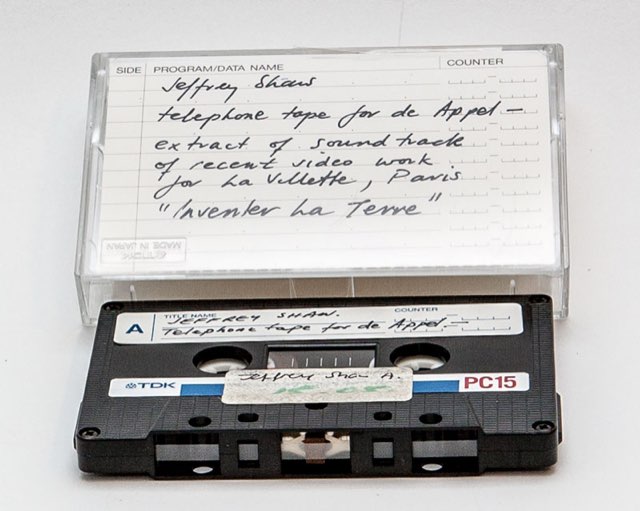 SIDE PROGRAM/DATA NAME COUNTER
Jeffrey Shaw
telephone tape for de Appel —
extract of soundtrack
of recent video work
for La Villette, Paris
"Inventer La Terre"
TDK
MADE IN JAPAN
A TITLE/NAME COUNTER
JEFFREY SHAW.
Telephone tape for de Appel. —
TDK PC15
Jeffrey Shaw A.